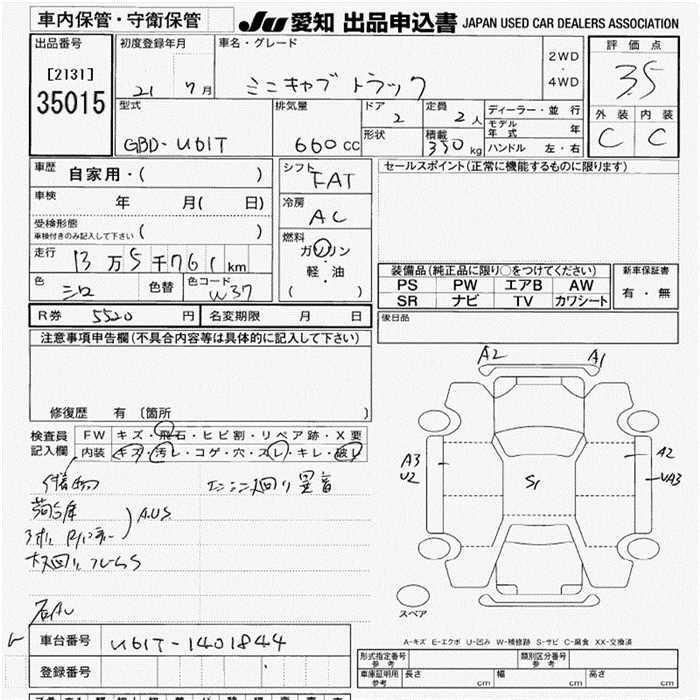 車内保管・守衛保管
JU 愛知 出品申込書 JAPAN USED CAR DEALERS ASSOCIATION
出品番号
[2131]
35015
初度登録年月
21 7月
車名・グレード
ミニキャブ トラック
2WD
・
4WD
評価点
3.5
外装 内装
C C
型式
GBD-U61T
排気量
660 cc
ドア
2
定員
2人
形状
積載
350 kg
ディーラー・並行
モデル年式 年
ハンドル 左・右
車歴
自家用・( )
車検
年 月( 日)
受検形態
車検付きのみ記入して下さい ( )
走行
13万5千761km
色
シロ
色替
色コード
W37
シフト
FAT
冷房
AC
燃料
ガソリン
・
軽・油
( )
セールスポイント(正常に機能するものに限ります)
装備品(純正品に限り○をつけてください)
PS PW エアB AW
SR ナビ TV カワシート
新車保証書
有・無
R券 5520 円
名変期限 月 日
後日品
注意事項申告欄(不具合内容等は具体的に記入して下さい)
修復歴 有 〔箇所 〕
検査員
記入欄
FW キズ・飛石・ヒビ割・リペア跡・X要
内装 キズ・汚レ・コゲ・穴・スレ・キレ・破レ
エンジン廻り異音
荷台
A.U.S
A2 A1
A3
U2
A2
UA3
S1
スペア
A-キズ E-エクボ U-凹み W-補修跡 S-サビ C-腐食 XX-交換済
車台番号
U61T-1401844
登録番号
形式指定番号
参考
類別区分番号
参考
車庫証明用
参考
長さ cm
幅 cm
高さ cm